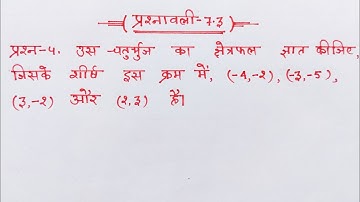 प्रश्नावली-7.3
प्रश्न-4. उस चतुर्भुज का क्षेत्रफल ज्ञात कीजिए,
जिसके शीर्ष इस क्रम में, (-4,-2), (-3,-5),
(3,-2) और (2,3) हैं।